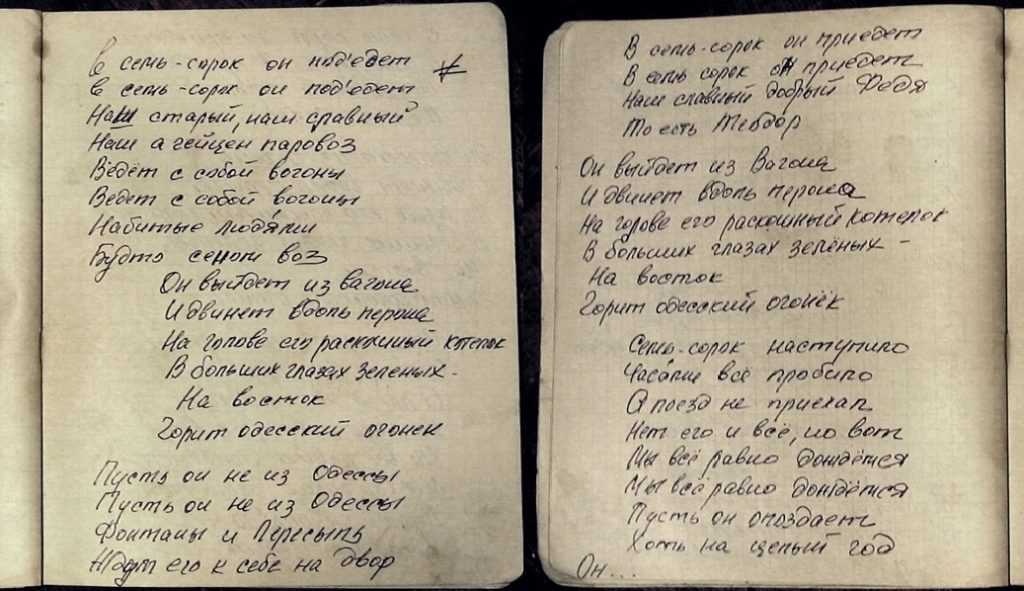 В семь-сорок он подъедет
в семь-сорок он подъедет
Наш старый, наш славный
Наш агейцен паровоз
Ведёт с собой вогоны
Ведет с собой вогоны
Набитые людями
Будто сеном воз
Он выйдет из вагона
И двинет вдоль перона
На голове его раскошный котелок
В больших глазах зеленых -
На восток
Горит одесский огонек
Пусть он не из Одессы
Пусть он не из Одессы
Фонтаны и Пересыпь
Ждут его к себе на двор
В семь-сорок он приедет
В семь сорок он приедет
Наш славный добрый Федя
То есть Теодор
Он выйдет из Вагона
И двинет вдоль перона
На голове его раскошный котелок
В больших глазах зелёных -
На восток
Горит одесский огонёк
Семь-сорок наступило
Часами всё пробило
А поезд не приехал
Нет его и всё, но вот
Мы всё равно дождёмся
Мы всё равно дождёмся
Пусть он опоздает
Хоть на целый год
Он...